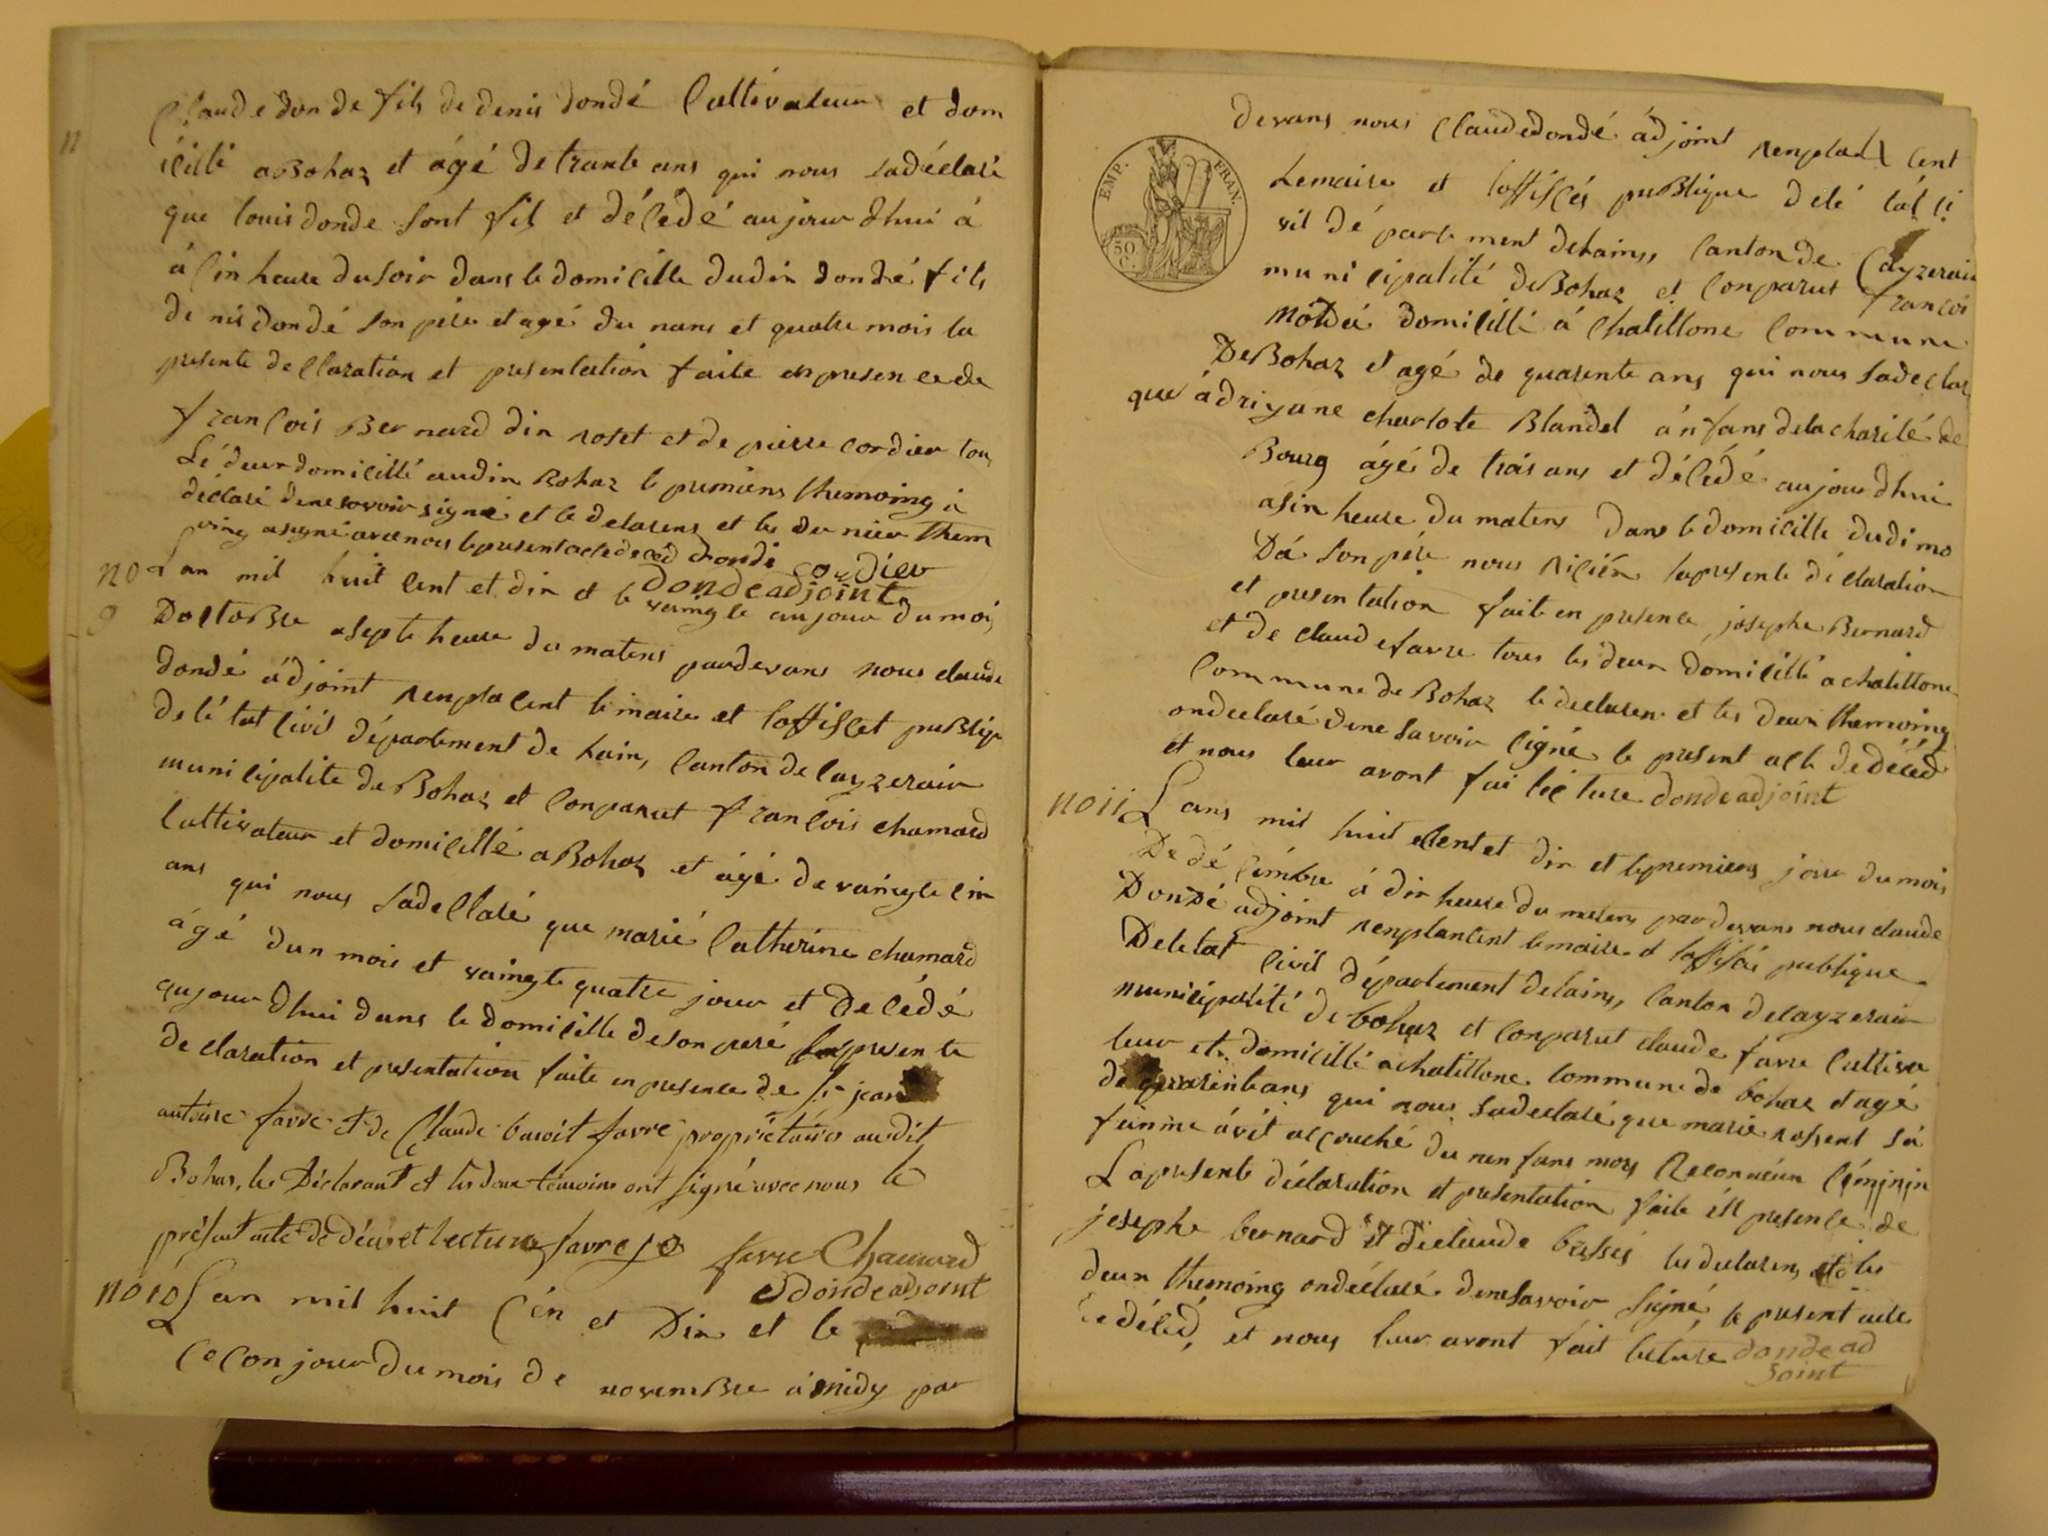 Claude don de fils de denis dondé Cultivateur et dom
icillé a Bohaz et ágé de trante ans qui nous sadéclaré
que louis donde sont fil et décédé aujour dhui á
á cin heure du soir dans le domicille dudin dondé fils
de nis dondé son pére et agé du nans et quatre mois la
presente decllaration et presentation faite en presence de
françois Bernard din roset et de pierre cordier tous
Lé deux domicillé audin Bohaz le premiens themoing á
déclaré dene savoir signé et le delarens et le dernier them
oing a signé avec nous le present acte de decéd dondé cordier
donde adjoint
no 9
Lan mil huit cent et din et le vaingte un jour du mois
DoctoBre a septe heure du matens pardevans nous claude
dondé ádjoint renplacent le maire et loffiscet puBlique
de lé tat civil département de hain, Canton de Cayzerair
municipalite de Bohaz et Conparut françois chamard
Cultivateur et domicillé a Bohaz et ágé de vaingte cin
ans qui nous sadecllaré que marié Catherine chamard
ágé dun mois et vaingte quatre jour et Décédé
aujour dhui dans le domicille de son peré la presente
déclaration et presentation faite en presence de Sr jean
antoine favre et de Claude benoit favre propriétaires audit
Bohas, le Déclarant et les deux témoins ont signé avec nous le
présent acte de décès et lecture favre
favre Chamard
donde adjoint
no 10
Lan mil huit Cén et Din et le
Ceconjour du mois de novemBre á midy par
EMP. FRAN.
50 C.
devans nous Claude dondé ádjoint renplacent
Lemaire et loffiscés puBlique delé tat ci
vil dé parte ment dehains, Canton de Cayzerair
muni cipalité de Bohaz et Conparut françoi
Modéé domicillé á Chatillone Commune
De Bohaz et agé de quarente ans qui nous sadeclar
que ádriyane charlote Blandel ánfans dela charité de
Bourg ágé de trois ans et décédé aujour dhui
a sin heure du matens dans le domicille dudi mo
Dá son pére nous la presente déclaration
et presentation faite en presence, josephe Bernard
et de claude favre tous les deux domicillé a chatillone
Commune de Bohaz le declaren et les deux themoing
on declaré dene savoir signé le present acte de décéd
et nous leur avont fai lécture donde adjoint
no 11
Lans mil huit cent et din et le premiens jour du mois
De dé cémbre á din heure du matens pardevans nous claude
Dondé adjoint renplantent le maire et loffisié publique
De le tat civil département delains, Canton de cayzerair
municipalité de bohaz et Conparut claude favre Cultiva
teur et domicillé a chatillone Commune de bohaz et agé
de quarente ans qui nous sadeclaré que marie rossent sá
fámme ávét accouché du nen fans mors
La presente déclaration et presentation faite én presence de
josephe bernard et de claude les declarens et les
deux themoing on déclaré dene savoir signé, le present acte
de décéd, et nous leur avont fait lecture donde ad
joint